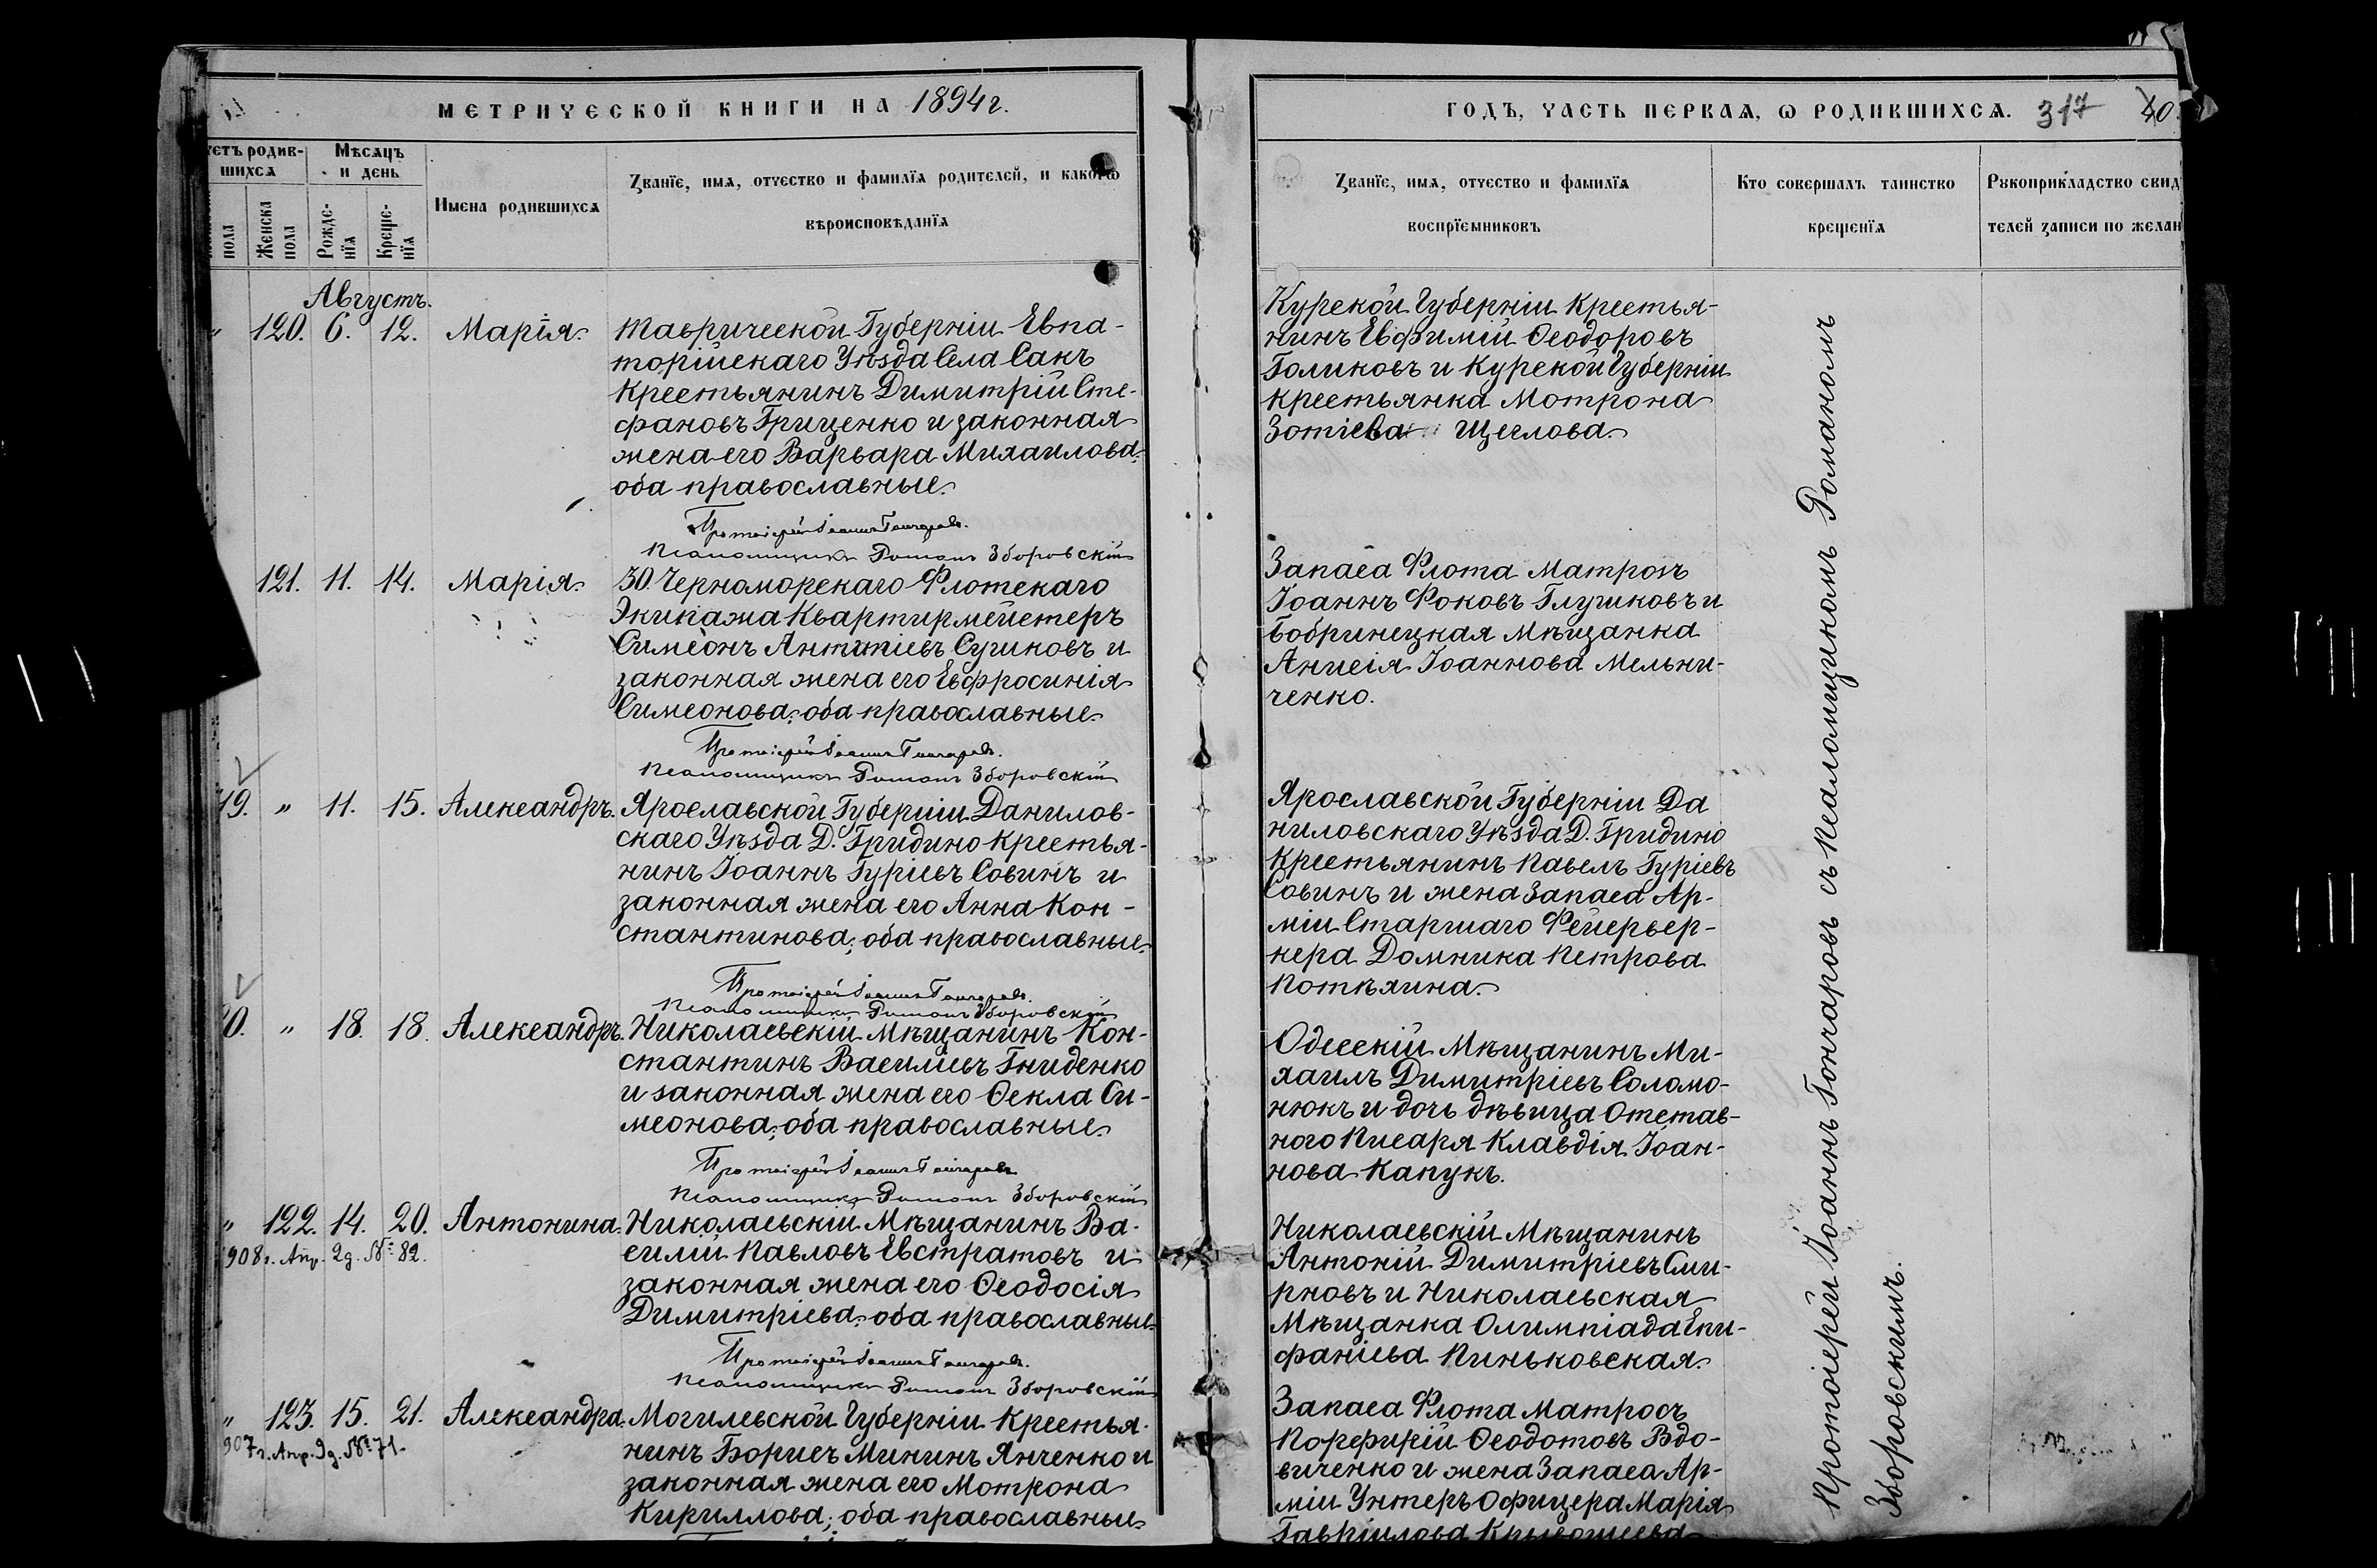 МЕТРИЧЕСКОЙ КНИГИ НА 1894 г.
Мѣсяцъ
четъ родив-
шихся
и день
Имена родившихся
Званїе, имя, отчество и фамилїя родителей, и какогѡ
вѣроисповѣданїя
пола
Женска
пола
Рожде-
нїя
Креще-
нїя
Августъ.
" 120. 6. 12. Марія. Таврической Губерніи Евпа-
торійскаго Уѣзда Села Сакъ
Крестьянинъ Димитрій Сте-
фановъ Гриценко и законная
жена его Варвара Михаилова;
оба православные.
Протоіерей Іоаннъ Гончаровъ.
Псаломщикъ Романъ Зборовскій
121. 11. 14. Марія. 30. Черноморскаго Флотскаго
Экипажа Квартирмейстеръ
Симеонъ Антипіевъ Сушковъ и
законная жена его Евфросинія
Симеонова; оба православные.
Протоіерей Іоаннъ Гончаровъ.
Псаломщикъ Романъ Зборовскій
19. " 11. 15. Александръ. Ярославской Губерніи Данилов-
скаго Уѣзда Д. Гридино Крестья-
нинъ Іоаннъ Гуріевъ Совинъ и
законная жена его Анна Кон-
стантинова; оба православные.
Протоіерей Іоаннъ Гончаровъ.
Псаломщикъ Романъ Зборовскій
0. " 18. 18. Александръ. Николаевскій Мѣщанинъ Кон-
стантинъ Васильевъ Гниденко
и законная жена его Ѳекла Си-
меонова; оба православные.
Протоіерей Іоаннъ Гончаровъ
Псаломщикъ Романъ Зборовскій
" 122. 14. 20. Антонина. Николаевскій Мѣщанинъ Ва-
908 г. Апр. 2 д. № 82.
силій Павловъ Евстратовъ и
законная жена его Ѳеодосія
Димитріева; оба православные.
Протоіерей Іоаннъ Гончаровъ.
Псаломщикъ Романъ Зборовскій
" 123. 15. 21. Александра. Могилевской Губерніи Крестья-
907 г. Апр. 9 д. № 71.
нинъ Борисъ Мининъ Янченко и
законная жена его Мотрона
Кириллова; оба православные.
ГОДЪ, ЧАСТЬ ПЕРВАЯ, Ѡ РОДИВШИХСЯ. 317 40.
Званїе, имя, отчество и фамилїя
воспрїемниковъ
Кто совершалъ таинство
крещенїя
Рукоприкладство свид
телей записи по желан
Курской Губерніи Крестья-
нинъ Евфимій Ѳеодоровъ
Голиковъ и Курской Губерніи
Крестьянка Мотрона
Зотіева Щеглова.
Запаса Флота Матросъ
Іоаннъ Фоковъ Глушковъ и
Бобринецкая Мѣщанка
Анисія Іоаннова Мельни-
ченко.
Ярославской Губерніи Да
ниловскаго Уѣзда Д. Гридино
Крестьянинъ Павелъ Гуріевъ
Совинъ и жена Запаса Ар-
міи Старшаго Фейервер-
кера Домника Петрова
Потѣхина.
Одесскій Мѣщанинъ Ми-
хаилъ Димитріевъ Соломо-
нюкъ и дочь дѣвица Отстав-
ного Писаря Клавдія Іоан-
нова Капукъ.
Николаевскій Мѣщанинъ
Антоній Димитріевъ Сми-
рновъ и Николаевская
Мѣщанка Олимпіада Епи-
фаніева Пиньковская.
Запаса Флота Матросъ
Порфирій Ѳеодотовъ Вдо-
виченко и жена Запаса Ар-
міи Унтеръ Офицера Марія
Гавріилова Кривошеева
Протоіерей Іоаннъ Гончаровъ съ Псаломщикомъ Романомъ
Зборовскимъ.